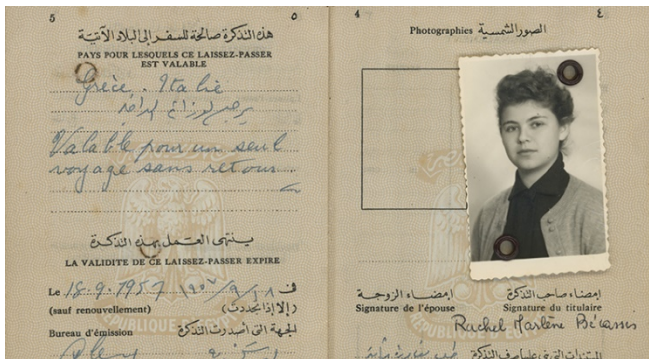 5
٥
هذه التذكرة صالحة للسفر إلى البلاد الآتية
PAYS POUR LESQUELS CE LAISSEZ-PASSER
EST VALABLE
Grèce. Italie
Valable pour un seul
voyage sans retour
ينتهى العمل بهذه التذكرة
LA VALIDITE DE CE LAISSEZ-PASSER EXPIRE
Le 18.9.1957 ١٩٥٧/٩/١٨ فى
(sauf renouvellement) (إلا إذا تجددت)
Bureau d'émission الجهة التى أصدرت التذكرة
4
٤
Photographies الصور الشمسية
إمضاء الزوجة
Signature de l'épouse
إمضاء صاحب التذكرة
Signature du titulaire
Rachel Marlène